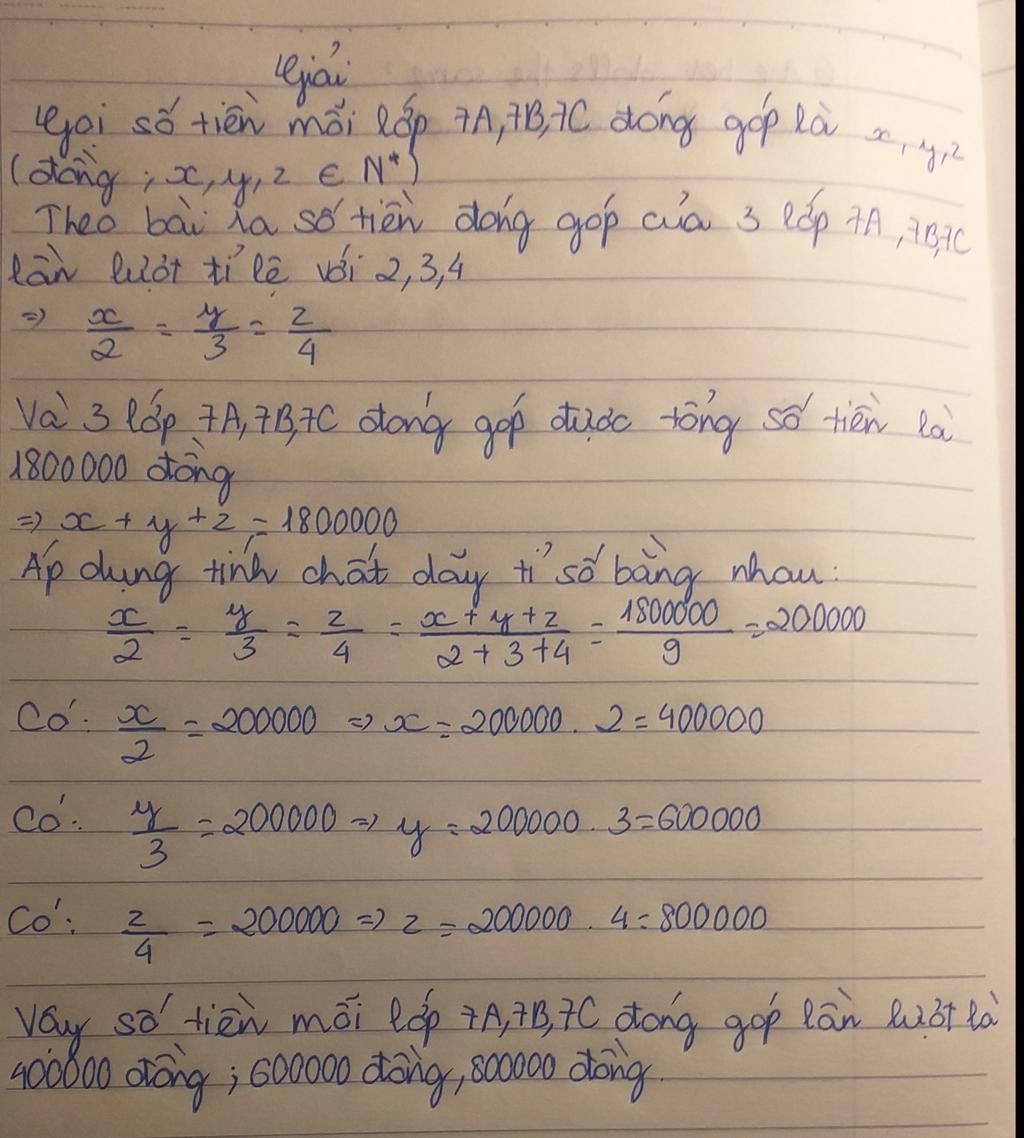 Giải
Gọi số tiền mỗi lớp 7A,7B,7C đóng góp là x,y,z
(đồng ; x,y,z ∈ N*)
Theo bài ra số tiền đóng góp của 3 lớp 7A,7B,7C
lần lượt tỉ lệ với 2,3,4
=> x/2 = y/3 = z/4
Và 3 lớp 7A,7B,7C đóng góp được tổng số tiền là
1800000 đồng
=> x + y + z = 1800000
Áp dụng tính chất dãy tỉ số bằng nhau:
x/2 = y/3 = z/4 = (x + y + z)/(2 + 3 + 4) = 1800000/9 = 200000
Có: x/2 = 200000 => x = 200000 . 2 = 400000
Có: y/3 = 200000 => y = 200000 . 3 = 600000
Có: z/4 = 200000 => z = 200000 . 4 = 800000
Vậy số tiền mỗi lớp 7A,7B,7C đóng góp lần lượt là
400000 đồng ; 600000 đồng, 800000 đồng.